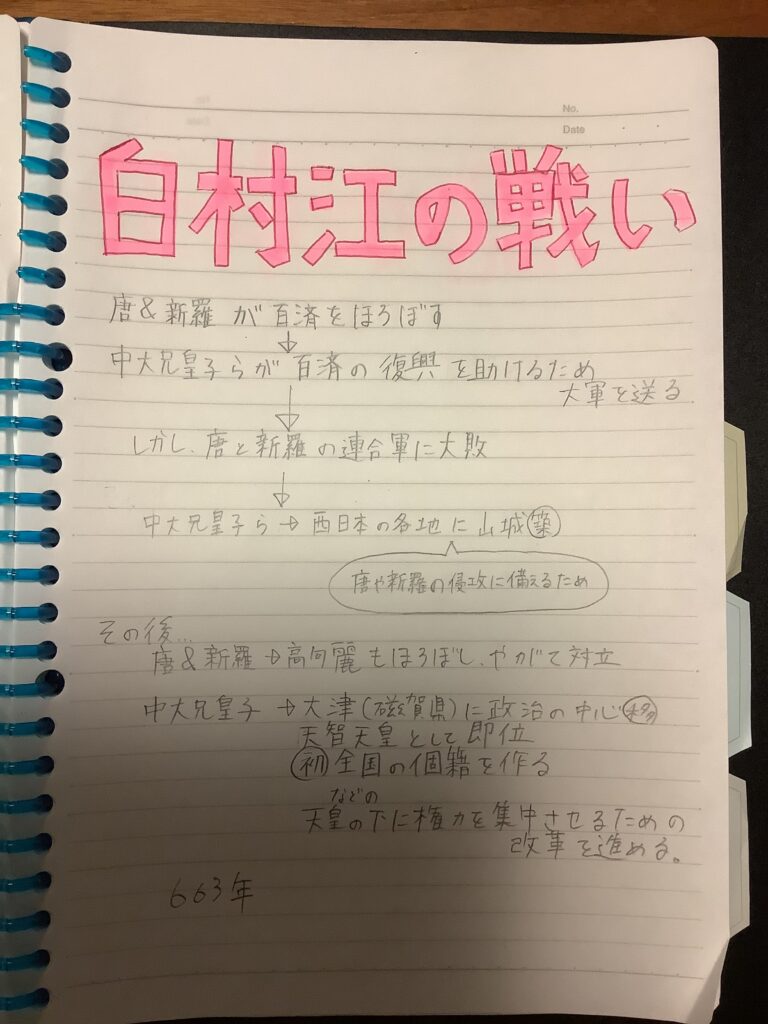 No.
Date
白村江の戦い
唐&新羅 が百済をほろぼす
↓
中大兄皇子らが百済の復興を助けるため
大軍を送る
↓
しかし、唐と新羅の連合軍に大敗
↓
中大兄皇子ら→西日本の各地に山城築
唐や新羅の侵攻に備えるため
その後…
唐&新羅→高句麗もほろぼし、やがて対立
中大兄皇子→大津(磁賀県)に政治の中心移
天智天皇として即位
初 全国の個籍を作る
などの
天皇の下に権力を集中させるための
改革を進める。
663年